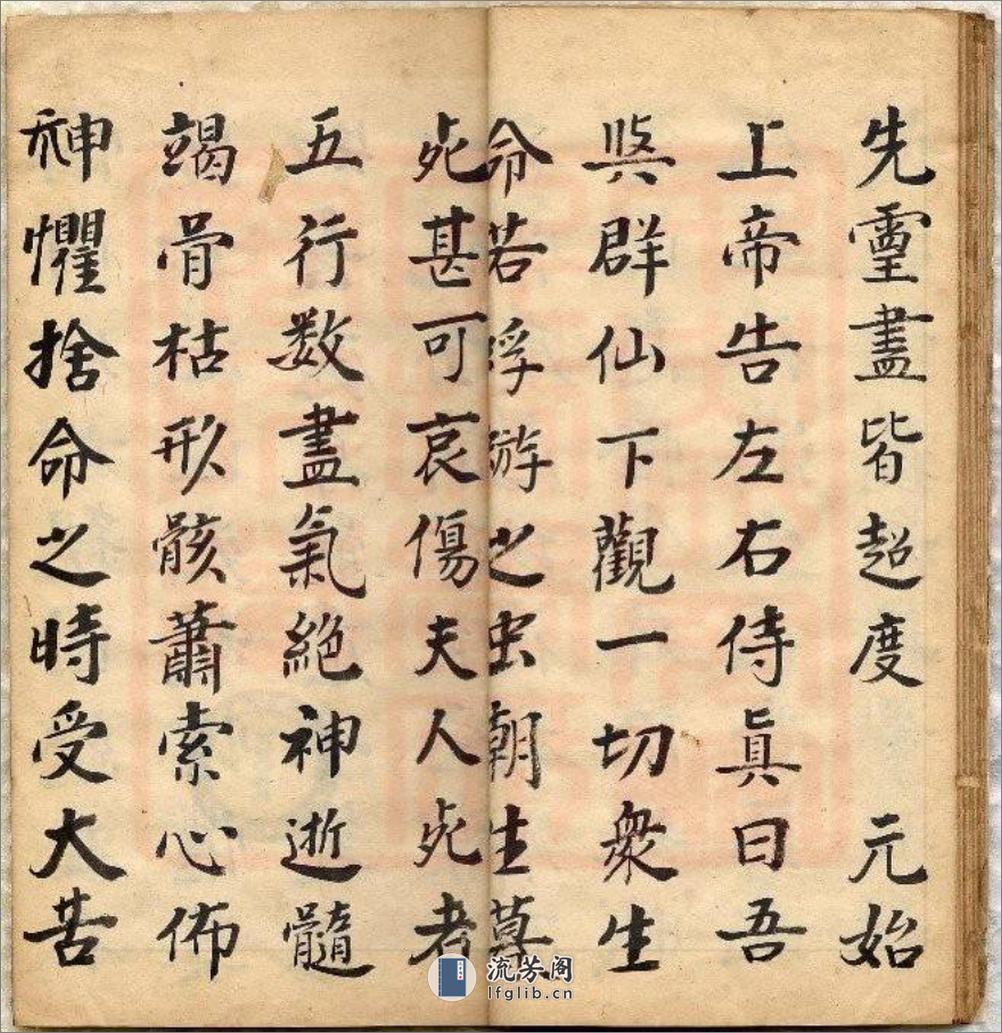 先靈盡皆超度　元始
上帝告左右侍眞曰吾
與群仙下觀一切衆生
命若浮游之虫朝生暮
死甚可哀傷夫人死者
五行数盡氣絕神逝髓
竭骨枯形骸蕭索心佈
神懼捨命之時受大苦
流芳阁
lfglib.cn